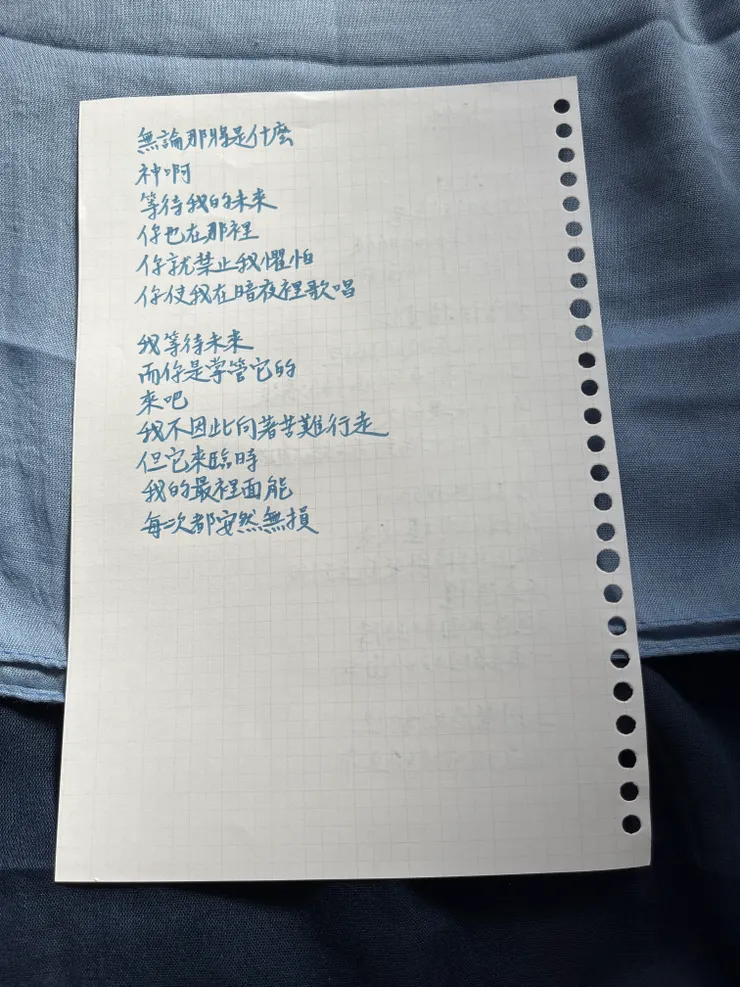 無論那將是什麼
神啊
等待我的未來
你也在那裡
你就禁止我懼怕
你使我在暗夜裡歌唱
我等待未來
而你是掌管它的
來吧
我不因此向著苦難行走
但它來臨時
我的最裡面能
每次都安然無損